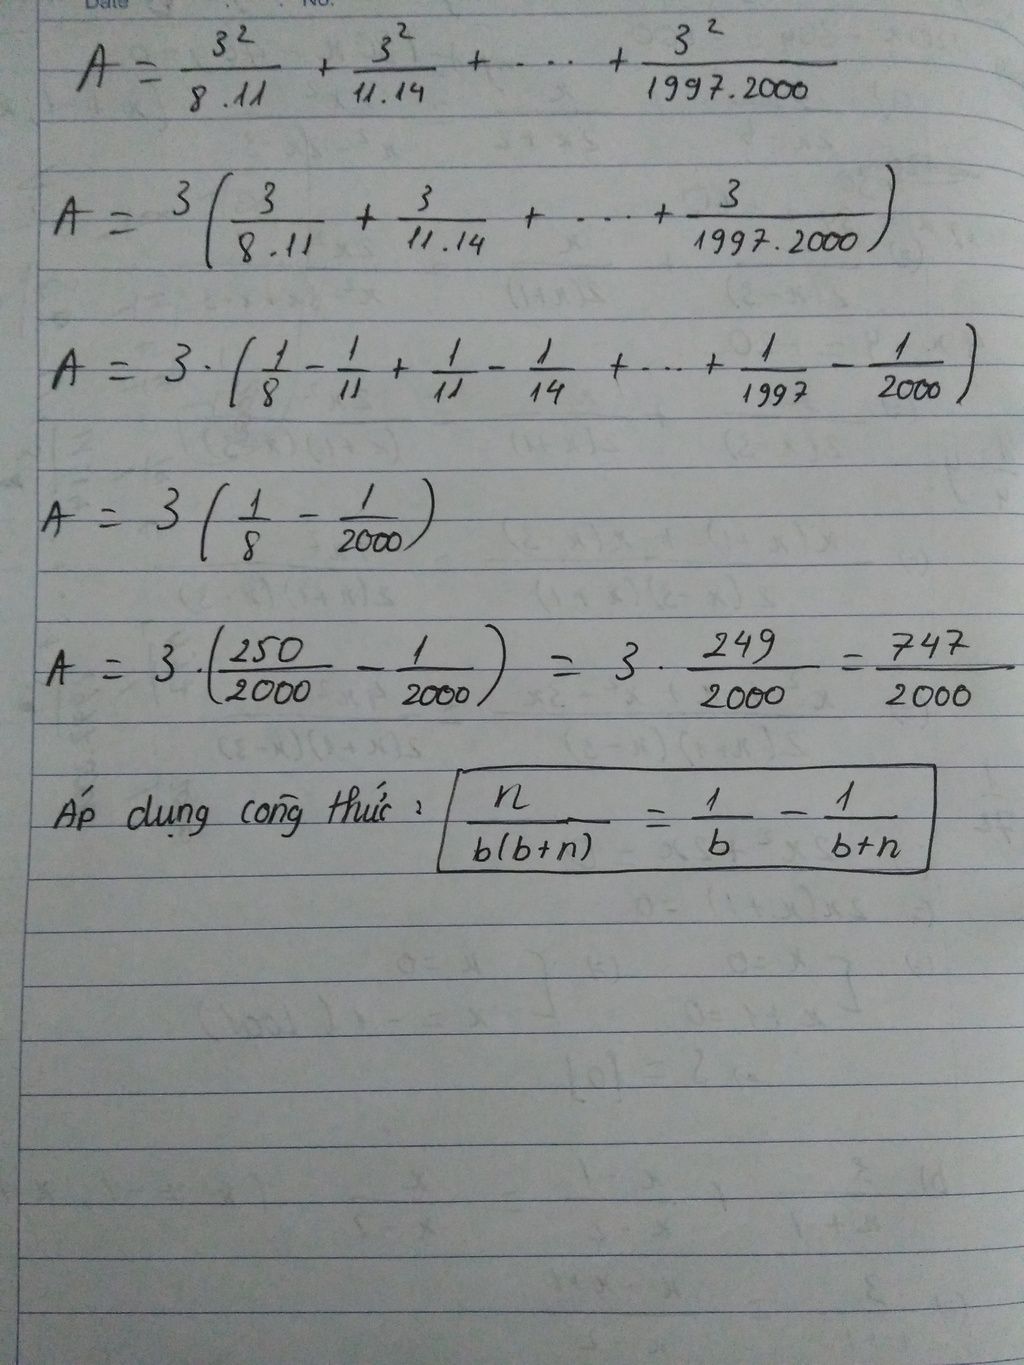 Date No.
A = 3²/8.11 + 3²/11.14 + .... + 3²/1997.2000
A = 3(3/8.11 + 3/11.14 + .... + 3/1997.2000)
A = 3.(1/8 - 1/11 + 1/11 - 1/14 + ... + 1/1997 - 1/2000)
A = 3(1/8 - 1/2000)
A = 3.(250/2000 - 1/2000) = 3.249/2000 = 747/2000
Áp dụng công thức: n/b(b+n) = 1/b - 1/b+n